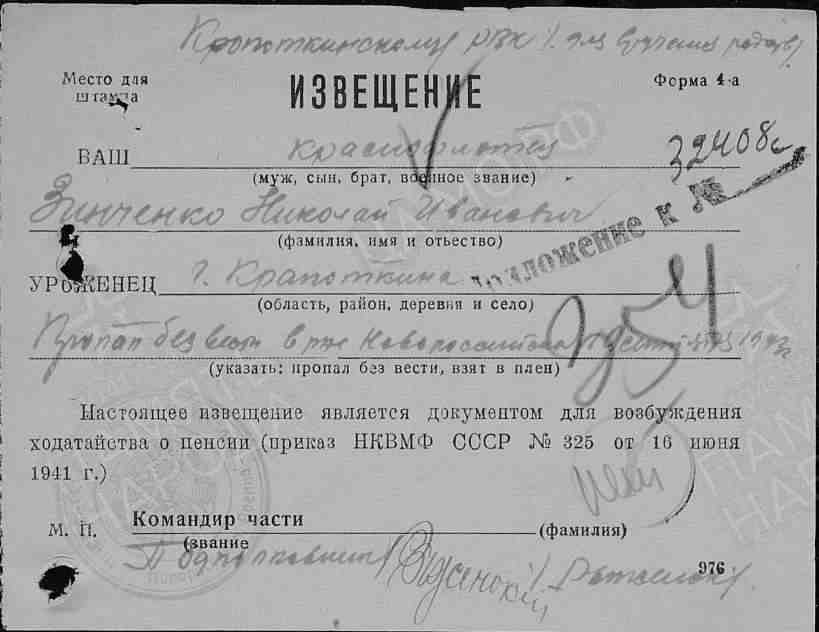 Кропоткинскому РВК /. для вручения родств/
Место для
штампа
ИЗВЕЩЕНИЕ
Форма 4-а
ВАШ краснофлотец
32408с
(муж, сын, брат, военное звание)
Зинченко Николай Иванович
(фамилия, имя и отьество)
Приложение к №
УРОЖЕНЕЦ г. Крапоткина
(область, район, деревня и село)
Пропал без вести в р-не Новороссийска
(указать: пропал без вести, взят в плен)
Настоящее извещение является документом для возбуждения
ходатайства о пенсии (приказ НКВМФ СССР № 325 от 16 июня
1941 г.)
М. П.
Командир части
(фамилия)
(звание
Подполковник
976